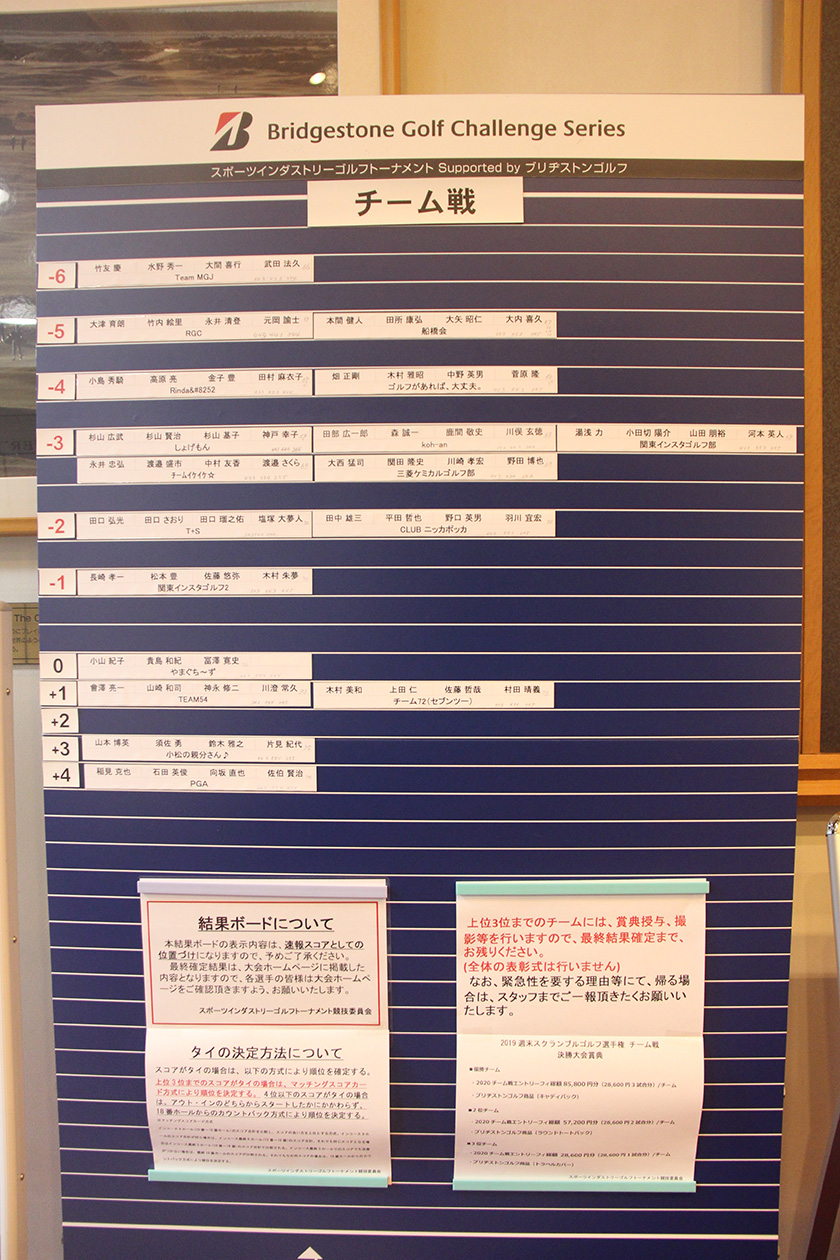 Bridgestone Golf Challenge Series
スポーツインダストリーゴルフトーナメント Supported by ブリヂストンゴルフ
チーム戦
-6
竹友 慶 水野 秀一 大関 喜行 武田 法久
Team MGJ
-5
大津 育朗 竹内 絵里 永井 清登 元岡 諭士
RGC
本間 健人 田所 康弘 大矢 昭仁 大内 喜久
船橋会
-4
小島 秀騎 高原 亮 金子 豊 田村 麻衣子
Rinda&#8252
畑 正剛 木村 雅昭 中野 英男 菅原 隆
ゴルフがあれば、大丈夫。
-3
杉山 広武 杉山 賢治 杉山 基子 神戸 幸子
しょげもん
田部 広一郎 森 誠一 鹿間 敬史 川俣 玄徳
koh-an
湯浅 力 小田切 陽介 山田 朋裕 河本 英人
関東インスタゴルフ部
永井 忠弘 渡邉 盛市 中村 友香 渡邉 さくら
チームイケイケ☆
大西 猛司 関田 隆史 川崎 孝宏 野田 博也
三菱ケミカルゴルフ部
-2
田口 弘光 田口 さおり 田口 瑠之佑 塩塚 大夢人
T+S
田中 雄三 平田 哲也 野口 英男 羽川 宜宏
CLUB ニッカポッカ
-1
長崎 孝一 松本 豊 佐藤 悠弥 木村 朱夢
関東インスタゴルフ2
0
小山 紀子 貴島 和紀 冨澤 寛史
やまぐち～ず
+1
會澤 亮一 山崎 和司 神永 修二 川澄 常久
TEAM54
木村 美和 上田 仁 佐藤 哲哉 村田 晴義
チーム72(セブンツー)
+2
+3
山本 博英 須佐 勇 鈴木 雅之 片見 紀代
小松の親分さん♪
+4
稲見 克也 石田 英俊 向坂 直也 佐伯 賢治
PGA
結果ボードについて
本結果ボードの表示内容は、速報スコアとしての
位置づけになりますので、予めご了承ください。
最終確定結果は、大会ホームページに掲載した
内容となりますので、各選手の皆様は大会ホームペ
ージをご確認頂きますよう、お願いいたします。
スポーツインダストリーゴルフトーナメント競技委員会
タイの決定方法について
スコアがタイの場合は、以下の方式により順位を確定する。
上位3位までのスコアがタイの場合は、マッチングスコアカー
ド方式により順位を決定する。 4位以下のスコアがタイの場合
は、アウト・インのどちらからスタートしたかにかかわらず、
18番ホールからのカウントバック方式により順位を決定する。
スポーツインダストリーゴルフトーナメント競技委員会
上位3位までのチームには、賞典授与、撮
影等を行いますので、最終結果確定まで、
お残りください。
(全体の表彰式は行いません)
なお、緊急性を要する理由等にて、帰る場
合は、スタッフまでご一報頂きたくお願いい
たします。
2019 週末スクランブルゴルフ選手権 チーム戦
決勝大会賞典
■優勝チーム
・2020 チーム戦エントリーフィ総額 85,800 円分 (28,600 円 3 試合分) /チーム
・ブリヂストンゴルフ商品 (キャディバック)
■2 位チーム
・2020 チーム戦エントリーフィ総額 57,200 円分 (28,600 円 2 試合分) /チーム
・ブリヂストンゴルフ商品 (ラウンドトートバック)
■3 位チーム
・2020 チーム戦エントリーフィ総額 28,600 円分 (28,600 円 1 試合分) /チーム
・ブリヂストンゴルフ商品 (トラベルカバー)
スポーツインダストリーゴルフトーナメント競技委員会